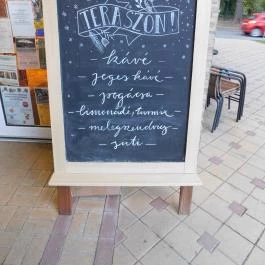 TERASZON!
— kávé —
— jeges kávé —
— pogácsa —
— limonádé, turmix —
— melegszendvics —
— süti —